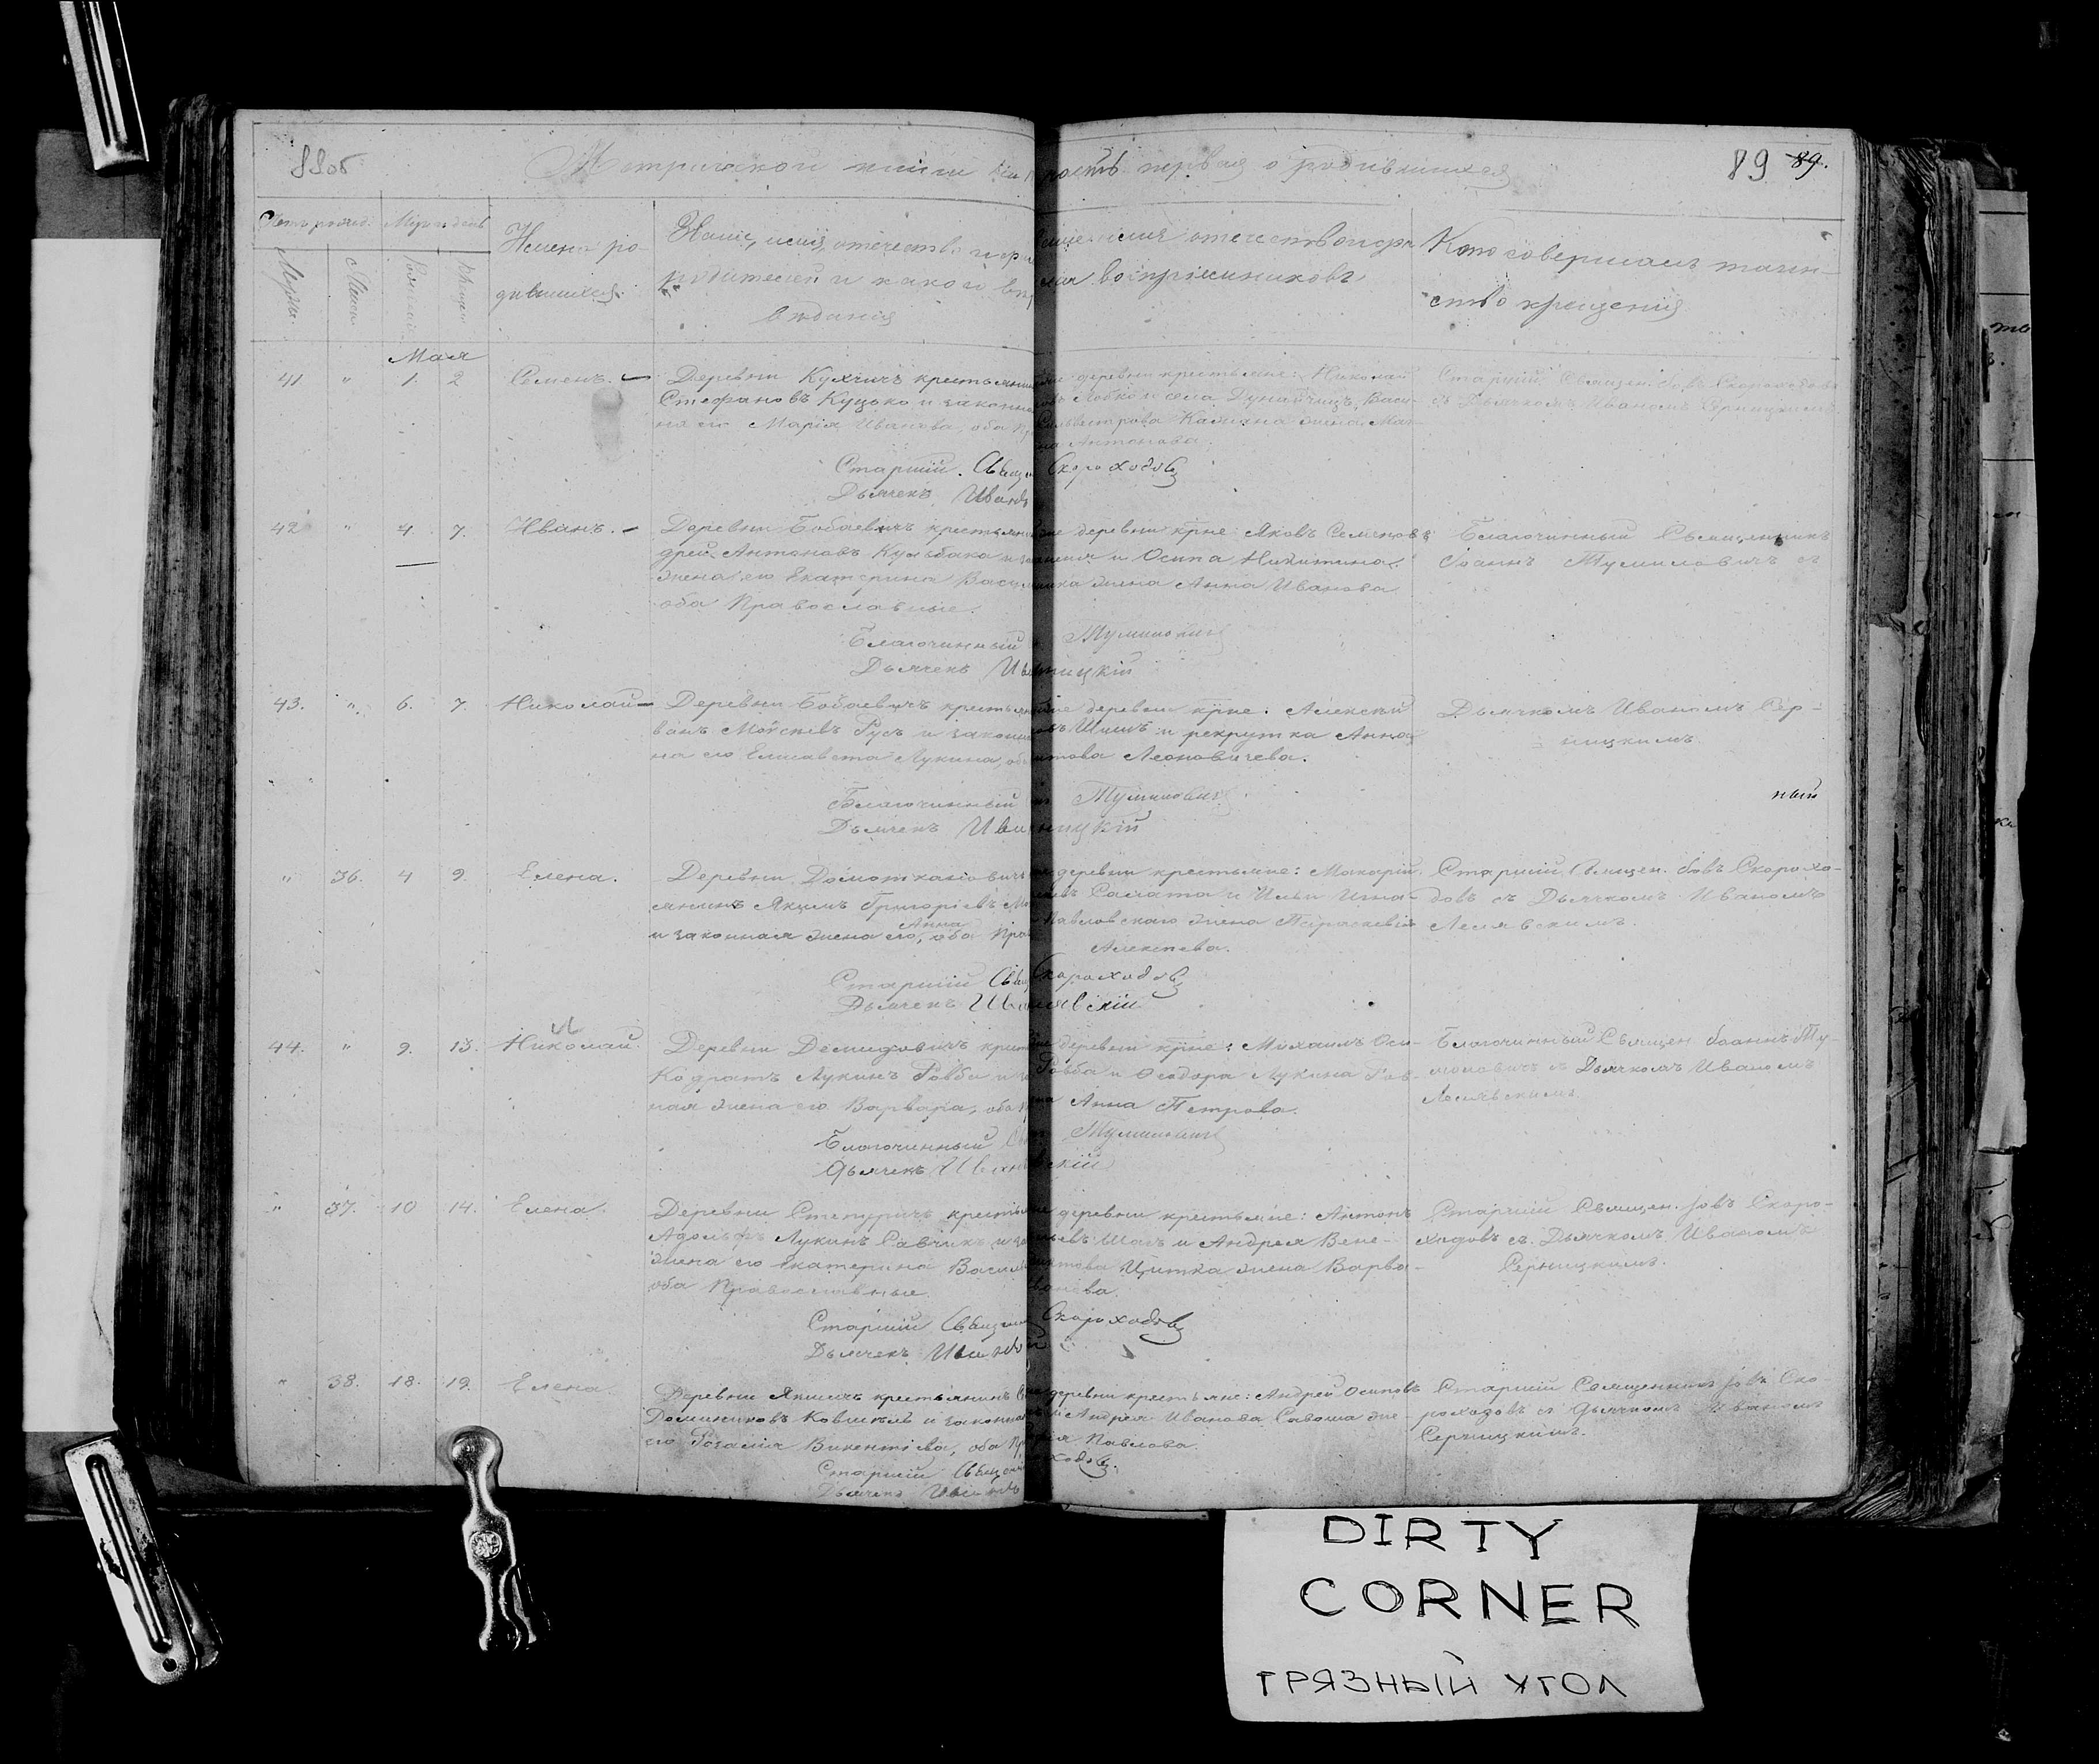 88об
Метрической книги часть первая о родившихся
89 89.
Счетъ рожд. Мѣс. и день
Мужес. Женс. Рожденія. Крещен.
Имена ро-
дившихся.
Званіе, имя, отечество и фа
родителей и какого вѣр
вѣданія
Званіе имя отечество и фа
милія воспріемниковъ
Кто совершалъ таин-
ство крещенія
Мая
41 " 1. 2 Семенъ.
Деревни Кухчичъ крестьянин
Стефановъ Куцько и законна
на его Марія Иванова, оба пр
деревни крестьяне: Николай
Лобко и села Дунайчицъ, Васи-
Сильвестрова Калина жена Мат-
на Антонова.
Старшій Священ. Іовъ Скороходовъ
съ Дьячкомъ Иваномъ Серницкимъ.
Старшій Свящ Скороходовъ
Дьячекъ Иванъ
42 " 4. 7. Иванъ.
Деревни Бобаевичъ крестьяни
дрей Антоновъ Кульбака и за
жена его Екатерина Васи
оба Православные.
деревни крне: Яковъ Семеновъ
и Осипа Никитина
жена Анна Иванова
Благочинный Священникъ
Іоаннъ Тумиловичъ съ
Благочинный Тумиловичъ
Дьячекъ Ив ницкій
43. " 6. 7. Николай
Деревни Бобаевичъ крестьян
ванъ Моисѣевъ Гусъ и законн
на его Елисавета Лукина, об
деревни крне: Алексѣй
Шишъ и рекрутка Анна
Леоновичева.
Дьячкомъ Иваномъ Сер-
ницкимъ.
ный
Благочинный Тумиловичъ
Дьячекъ Ива ницкій
" 36. 4 9. Елена.
Деревни Домоткановичъ
янинъ Якимъ Григорьевъ Мо
Анна
и законная жена его, оба Пра
деревни крестьяне: Макарій
Саката и Ильи Игна-
Павловскаго жена Параскевія
Алексѣева.
Старшій Священ. Іовъ Скорохо-
довъ съ Дьячкомъ Иваномъ
Лесявскимъ.
Старшій Свящ Скороходовъ
Дьячекъ Ива явскій
44. " 9. 13. Николай.
Деревни Демидовичъ крест
Кодратъ Лукинъ Ровба и за
ная жена его Варвара, оба п
деревни крне: Михаилъ Оси-
Ровба и Ѳеодора Лукина Ров-
на Анна Петрова.
Благочинный Священ. Іоаннъ Ту-
миловичъ съ Дьячкомъ Иваномъ
Лесявскимъ.
Благочинный Св Тумиловичъ
Дьячекъ Иван вскій
" 37. 10 14. Елена.
Деревни Степуричъ крестья
Адольфъ Лукинъ Савчикъ и за
жена его Екатерина Васил
оба Православные.
деревни крестьяне: Антонъ
Шасъ и Андрея Вене-
диктова Цитка жена Варва-
Старшій Священ. Іовъ Скоро-
ходовъ съ Дьячкомъ Иваномъ
Серницкимъ.
Старшій Священ Скороходовъ
Дьячекъ Иванъ
" 38. 18. 19. Елена.
Деревни Якшичъ крестьянинъ
Доминиковъ Ковшель и законна
его Розалія Викентіева, оба Пр
деревни крестьяне: Андрей Осиповъ
и Андрея Иванова Савоша же-
Павлова.
Старшій Священникъ Іовъ Ско-
роходовъ съ Дьячкомъ Иваномъ
Серницкимъ.
Старшій Священ ходовъ.
Дьячекъ Иванъ
DIRTY
CORNER
ГРЯЗНЫЙ УГОЛ